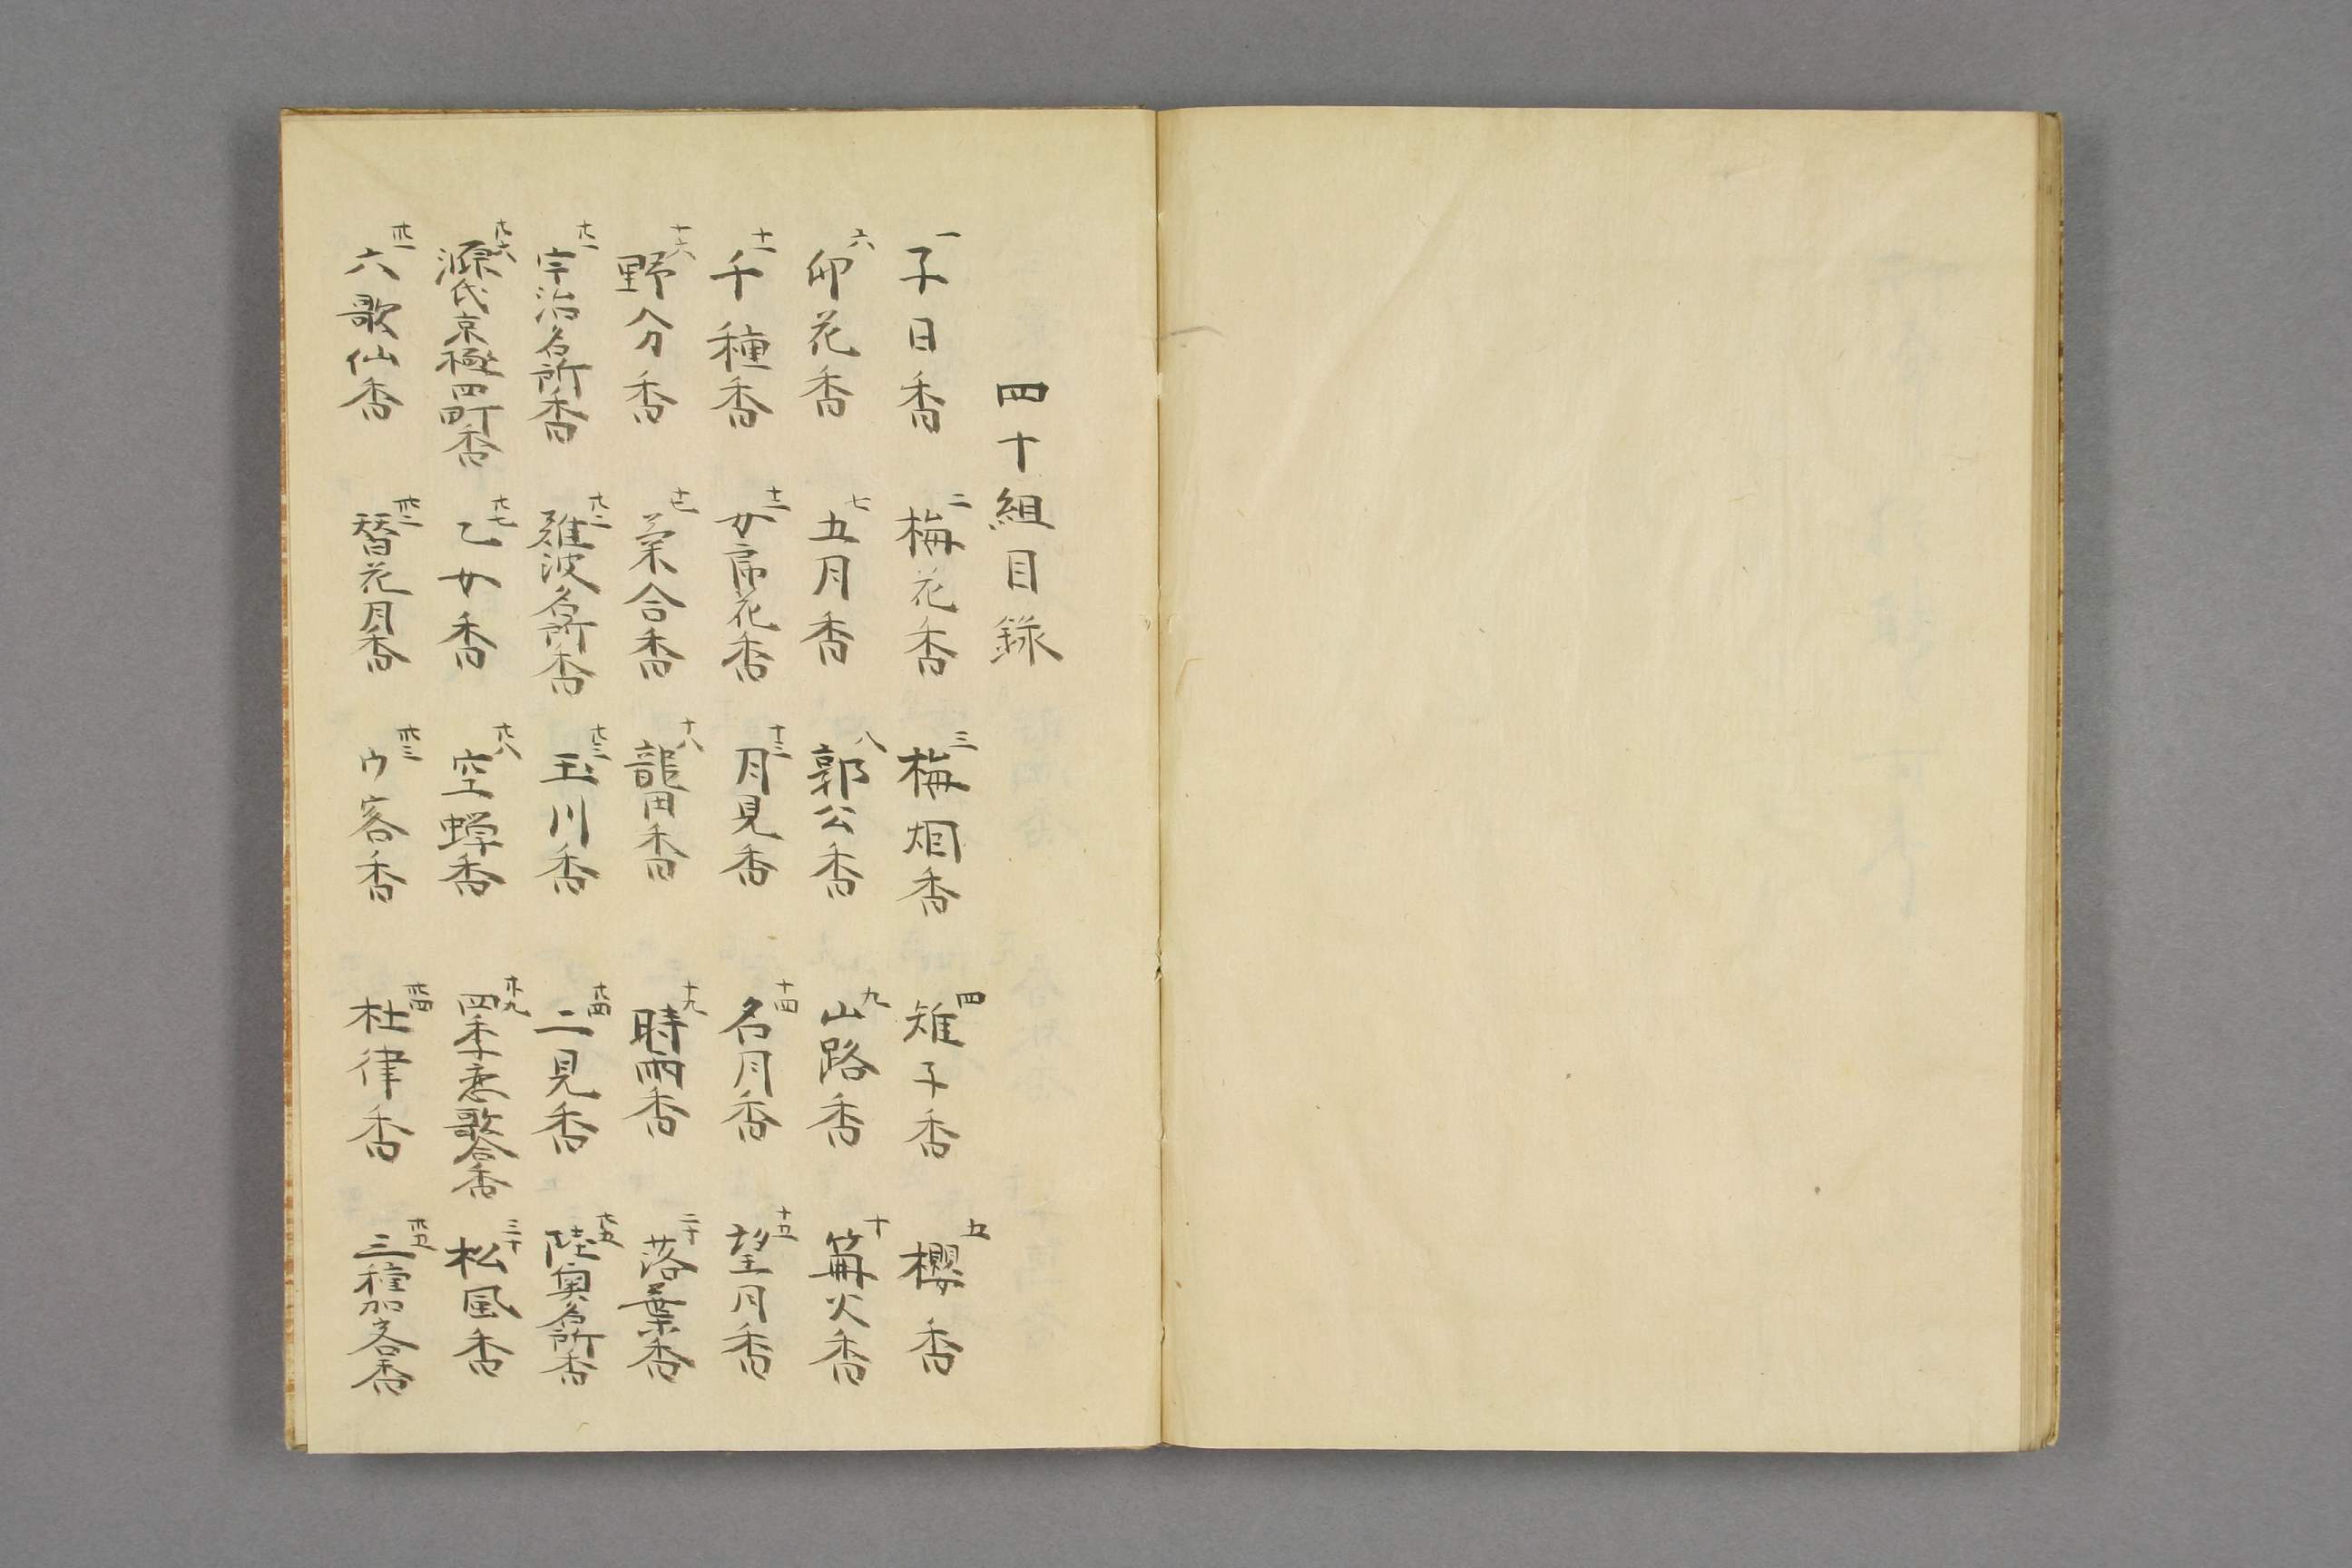 四十組目録
一子日香 二梅花香 三梅烟香 四雉子香 五櫻香
六卯花香 七五月香 八郭公香 九山路香 十篝火香
十一千種香 十二女郎花香 十三月見香 十四名月香 十五望月香
十六野分香 十七菊合香 十八龍田香 十九時雨香 二十落葉香
廿一宇治名所香 廿二難波名所香 廿三玉川香 廿四二見香 廿五陸奥名所香
廿六源氏京極四町香 廿七乙女香 廿八空蝉香 廿九四季恋歌合香 三十松風香
卅一六歌仙香 卅二替花月香 卅三ウ客香 卅四杜律香 卅五三種加客香